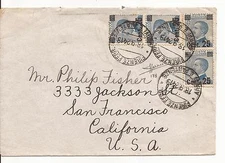 Mr. Philip Fisher
3333 Jackson St
San Francisco
California
U. S. A.